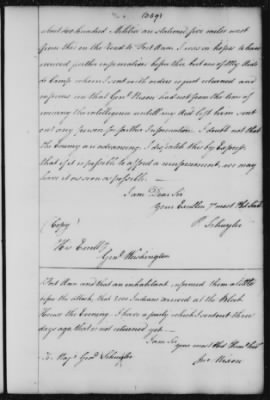 (1009)
about six hundred Militia are stationed five miles west
from this on the Road to Fort Ann. I was in hopes to have
received further information before this but one of My Aids
de Camp whom I sent with orders is just returned and
informs me that Genl. Nixon had not from the time of
receiving the intelligence untill my Aid left him sent
out any person for further Information. I doubt not that
the Enemy are advancing. I dispatch this by Express
that if it is possible to afford a reinforcement, we may
have it as soon as possible.
I am Dear Sir
your Excellency's most Obt. Servt.
P. Schuyler
(Copy)
His Excell'y
Genl. Washington
Fort Ann and that an inhabitant informed them a little
before the attack, that 1000 Indians arrived at the Block
House the Evening. I have a party which I sent out three
days ago that is not returned yet.
I am Sir
your most Hbl. Servt.
Jno. Nixon
To Majr. Genl. Schuyler